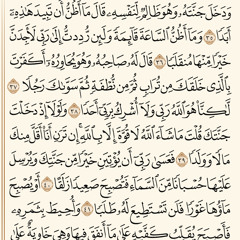 وَدَخَلَ جَنَّتَهُۥ وَهُوَ ظَالِمٌ لِّنَفْسِهِۦ قَالَ مَآ أَظُنُّ أَن تَبِيدَ هَٰذِهِۦٓ
أَبَدًا ٣٥ وَمَآ أَظُنُّ ٱلسَّاعَةَ قَآئِمَةً وَلَئِن رُّدِدتُّ إِلَىٰ رَبِّى لَأَجِدَنَّ
خَيْرًا مِّنْهَا مُنقَلَبًا ٣٦ قَالَ لَهُۥ صَاحِبُهُۥ وَهُوَ يُحَاوِرُهُۥٓ أَكَفَرْتَ
بِٱلَّذِى خَلَقَكَ مِن تُرَابٍ ثُمَّ مِن نُّطْفَةٍ ثُمَّ سَوَّىٰكَ رَجُلًا ٣٧
لَّٰكِنَّا۠ هُوَ ٱللَّهُ رَبِّى وَلَآ أُشْرِكُ بِرَبِّىٓ أَحَدًا ٣٨ وَلَوْلَآ إِذْ دَخَلْتَ
جَنَّتَكَ قُلْتَ مَا شَآءَ ٱللَّهُ لَا قُوَّةَ إِلَّا بِٱللَّهِ إِن تَرَنِ أَنَا۠ أَقَلَّ مِنكَ
مَالًا وَوَلَدًا ٣٩ فَعَسَىٰ رَبِّىٓ أَن يُؤْتِيَنِ خَيْرًا مِّن جَنَّتِكَ وَيُرْسِلَ
عَلَيْهَا حُسْبَانًا مِّنَ ٱلسَّمَآءِ فَتُصْبِحَ صَعِيدًا زَلَقًا ٤٠ أَوْ يُصْبِحَ
مَآؤُهَا غَوْرًا فَلَن تَسْتَطِيعَ لَهُۥ طَلَبًا ٤١ وَأُحِيطَ بِثَمَرِهِۦ
فَأَصْبَحَ يُقَلِّبُ كَفَّيْهِ عَلَىٰ مَآ أَنفَقَ فِيهَا وَهِىَ خَاوِيَةٌ عَلَىٰ